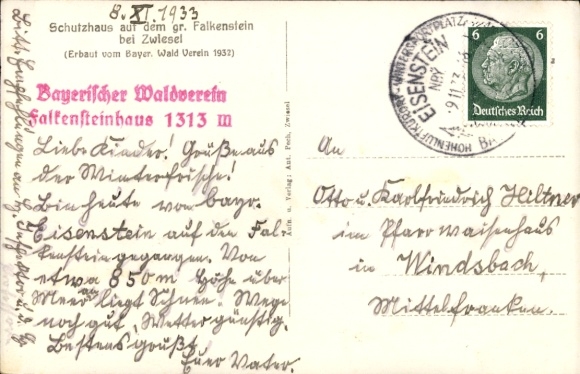 8. XI. 1933
Schutzhaus auf dem gr. Falkenstein
bei Zwiesel
(Erbaut vom Bayer. Wald Verein 1932)
Bayerischer Waldverein
Falkensteinhaus 1313 m
Liebe Kinder! Grüße aus
der Winterfrische!
Bin heute von bayr.
Eisenstein auf den Fal-
kenstein gegangen. Von
etwa 850 m Höhe über
Meer an liegt Schnee. Wege
noch gut, Wetter günstig.
Bestens grüßt
Euer Vater.
Bitte Empfehlungen an H. Inspektor u.
Aufn. u. Verlag: Ant. Pech, Zwiesel
HÖHENLUFTKURORT-WINTERSPORTPLATZ
EISENSTEIN
NBY
9.11.33
6 6
Deutsches Reich
An
Otto u. Karlfriedrich Hiltner
im Pfarrwaisenhaus
in Windsbach,
Mittelfranken.